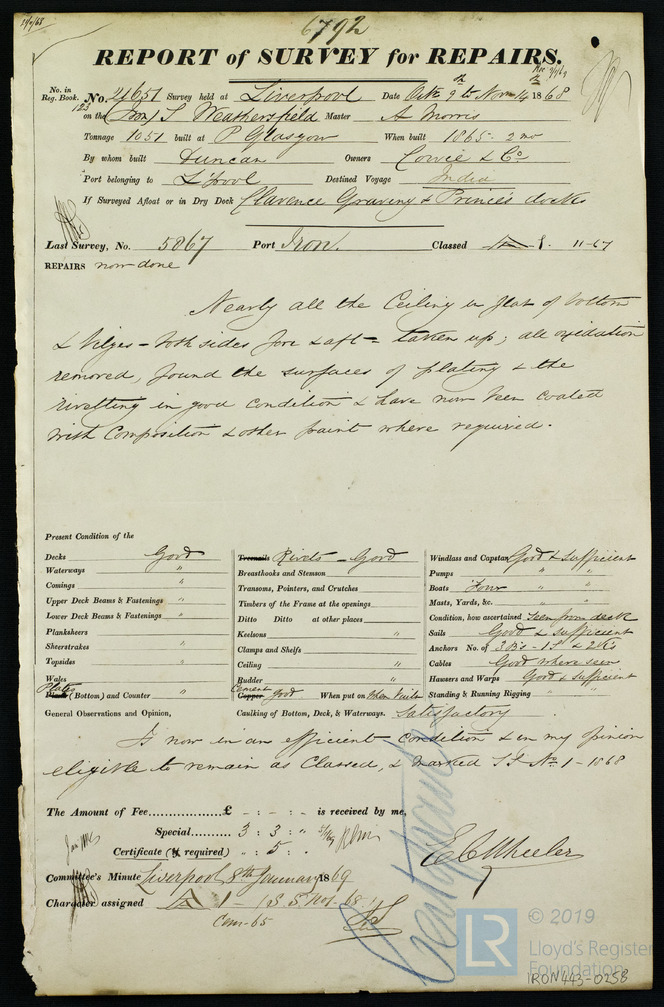 6792
REPORT of SURVEY for REPAIRS.
No. in Reg. Book. No. 21651 Survey held at Liverpool Date Octr 9th to Novr 14th 1868
123 on the Iron S Weathersfield Master A Morris
Tonnage 1051 built at P Glasgow When built 1865 - 2 mo
By whom built Duncan Owners Cowie & Co
Port belonging to L'pool Destined Voyage India
If Surveyed Afloat or in Dry Dock Clarence Graving & Princes docks
Last Survey, No. 5867 Port Iron. Classed A 1. 11-67
REPAIRS now done
Nearly all the Ceiling in flat of bottom
& bilges - both sides fore & aft - taken up; all oxidation
removed, found the surfaces of plating & the
rivetting in good condition & have now been coated
with Composition & other paint where required.
Present Condition of the
Decks Good
Waterways "
Comings "
Upper Deck Beams & Fastenings "
Lower Deck Beams & Fastenings "
Planksheers
Sheerstrakes "
Topsides "
Wales
Plates (Bottom) and Counter "
General Observations and Opinion,
Treenails Rivets - Good
Breasthooks and Stemson
Transoms, Pointers, and Crutches
Timbers of the Frame at the openings
Ditto Ditto at other places
Keelsons "
Clamps and Shelfs
Ceiling "
Rudder "
Cement Copper good When put on When built
Caulking of Bottom, Deck, & Waterways. Satisfactory
Windlass and Capstan Good & Sufficient
Pumps " "
Boats Four " "
Masts, Yards, &c. " "
Condition, how ascertained Seen from deck
Sails Good & sufficient
Anchors No. of 3 B's - 1 S & 2 K's
Cables Good where seen
Hawsers and Warps Good & sufficient
Standing & Running Rigging " "
Is now in an efficient condition & in my opinion
eligible to remain as Classed, & marked S S No 1 - 1868
The Amount of Fee £ - : - : - is received by me,
Special 3 : 3 : "
Certificate (if required) " : 5 : "
E C Wheeler
Committee's Minute Liverpool 8th January 1869
Character assigned A 1 - S.S. No 1 - 68 -
Cem-65
LR
© 2019
Lloyd's Register
Foundation
IRON443-0258